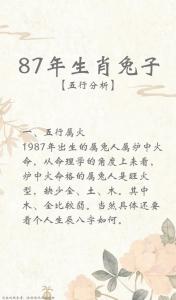 87年生肖兔子
【五行分析】
一、五行属火
1987年出生的属兔人属炉中火
命。从命理学的角度上来看，
炉中火命格的属兔人是旺火
型，缺少金、土、木。其中
木、金比较弱。当然具体还要
看个人生辰八字如何。